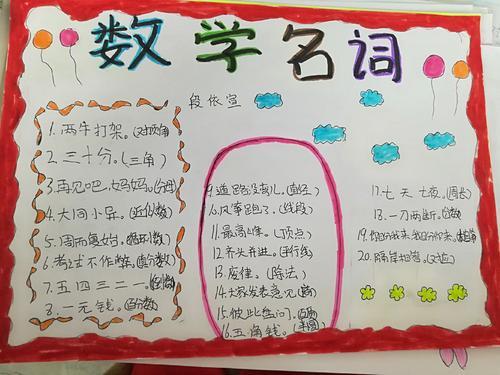 数学名词
段依宣
1.两牛打架。(对顶角)
2.三十分。(三角)
3.再见吧,妈妈。(分母)
4.大同小异。(近似数)
5.周而复始。(循环小数)
6.考试不作弊。(真分数)
7.五四三二一。(倒数)
8.一元钱。(百分数)
9.道路没弯儿。(直径)
10.风筝跑了。(线段)
11.最高峰。(顶点)
12.齐头并进。(平行线)
13.废律。(除法)
14.大家发表意见。
15.彼此盘问。(互质)
16.五角钱。(半圆)
17.七天七夜。(周长)
18.一刀两断。
19.
20.隔岸相望。(对应)